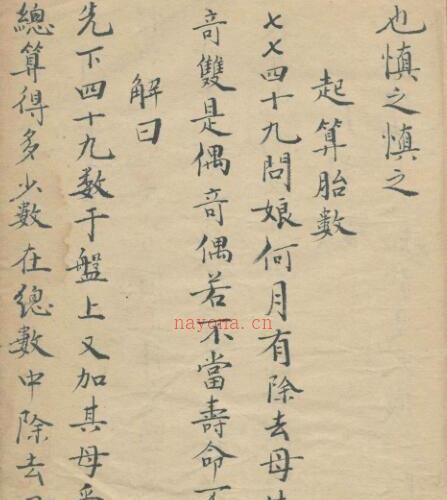 也慎之慎之
起算胎數
七七四十九問娘何月有除去母
奇雙是偶奇偶若不當壽命不
解曰
先下四十九数于盤上又加其母
總算得多少數在總數中除去
nayona.cn